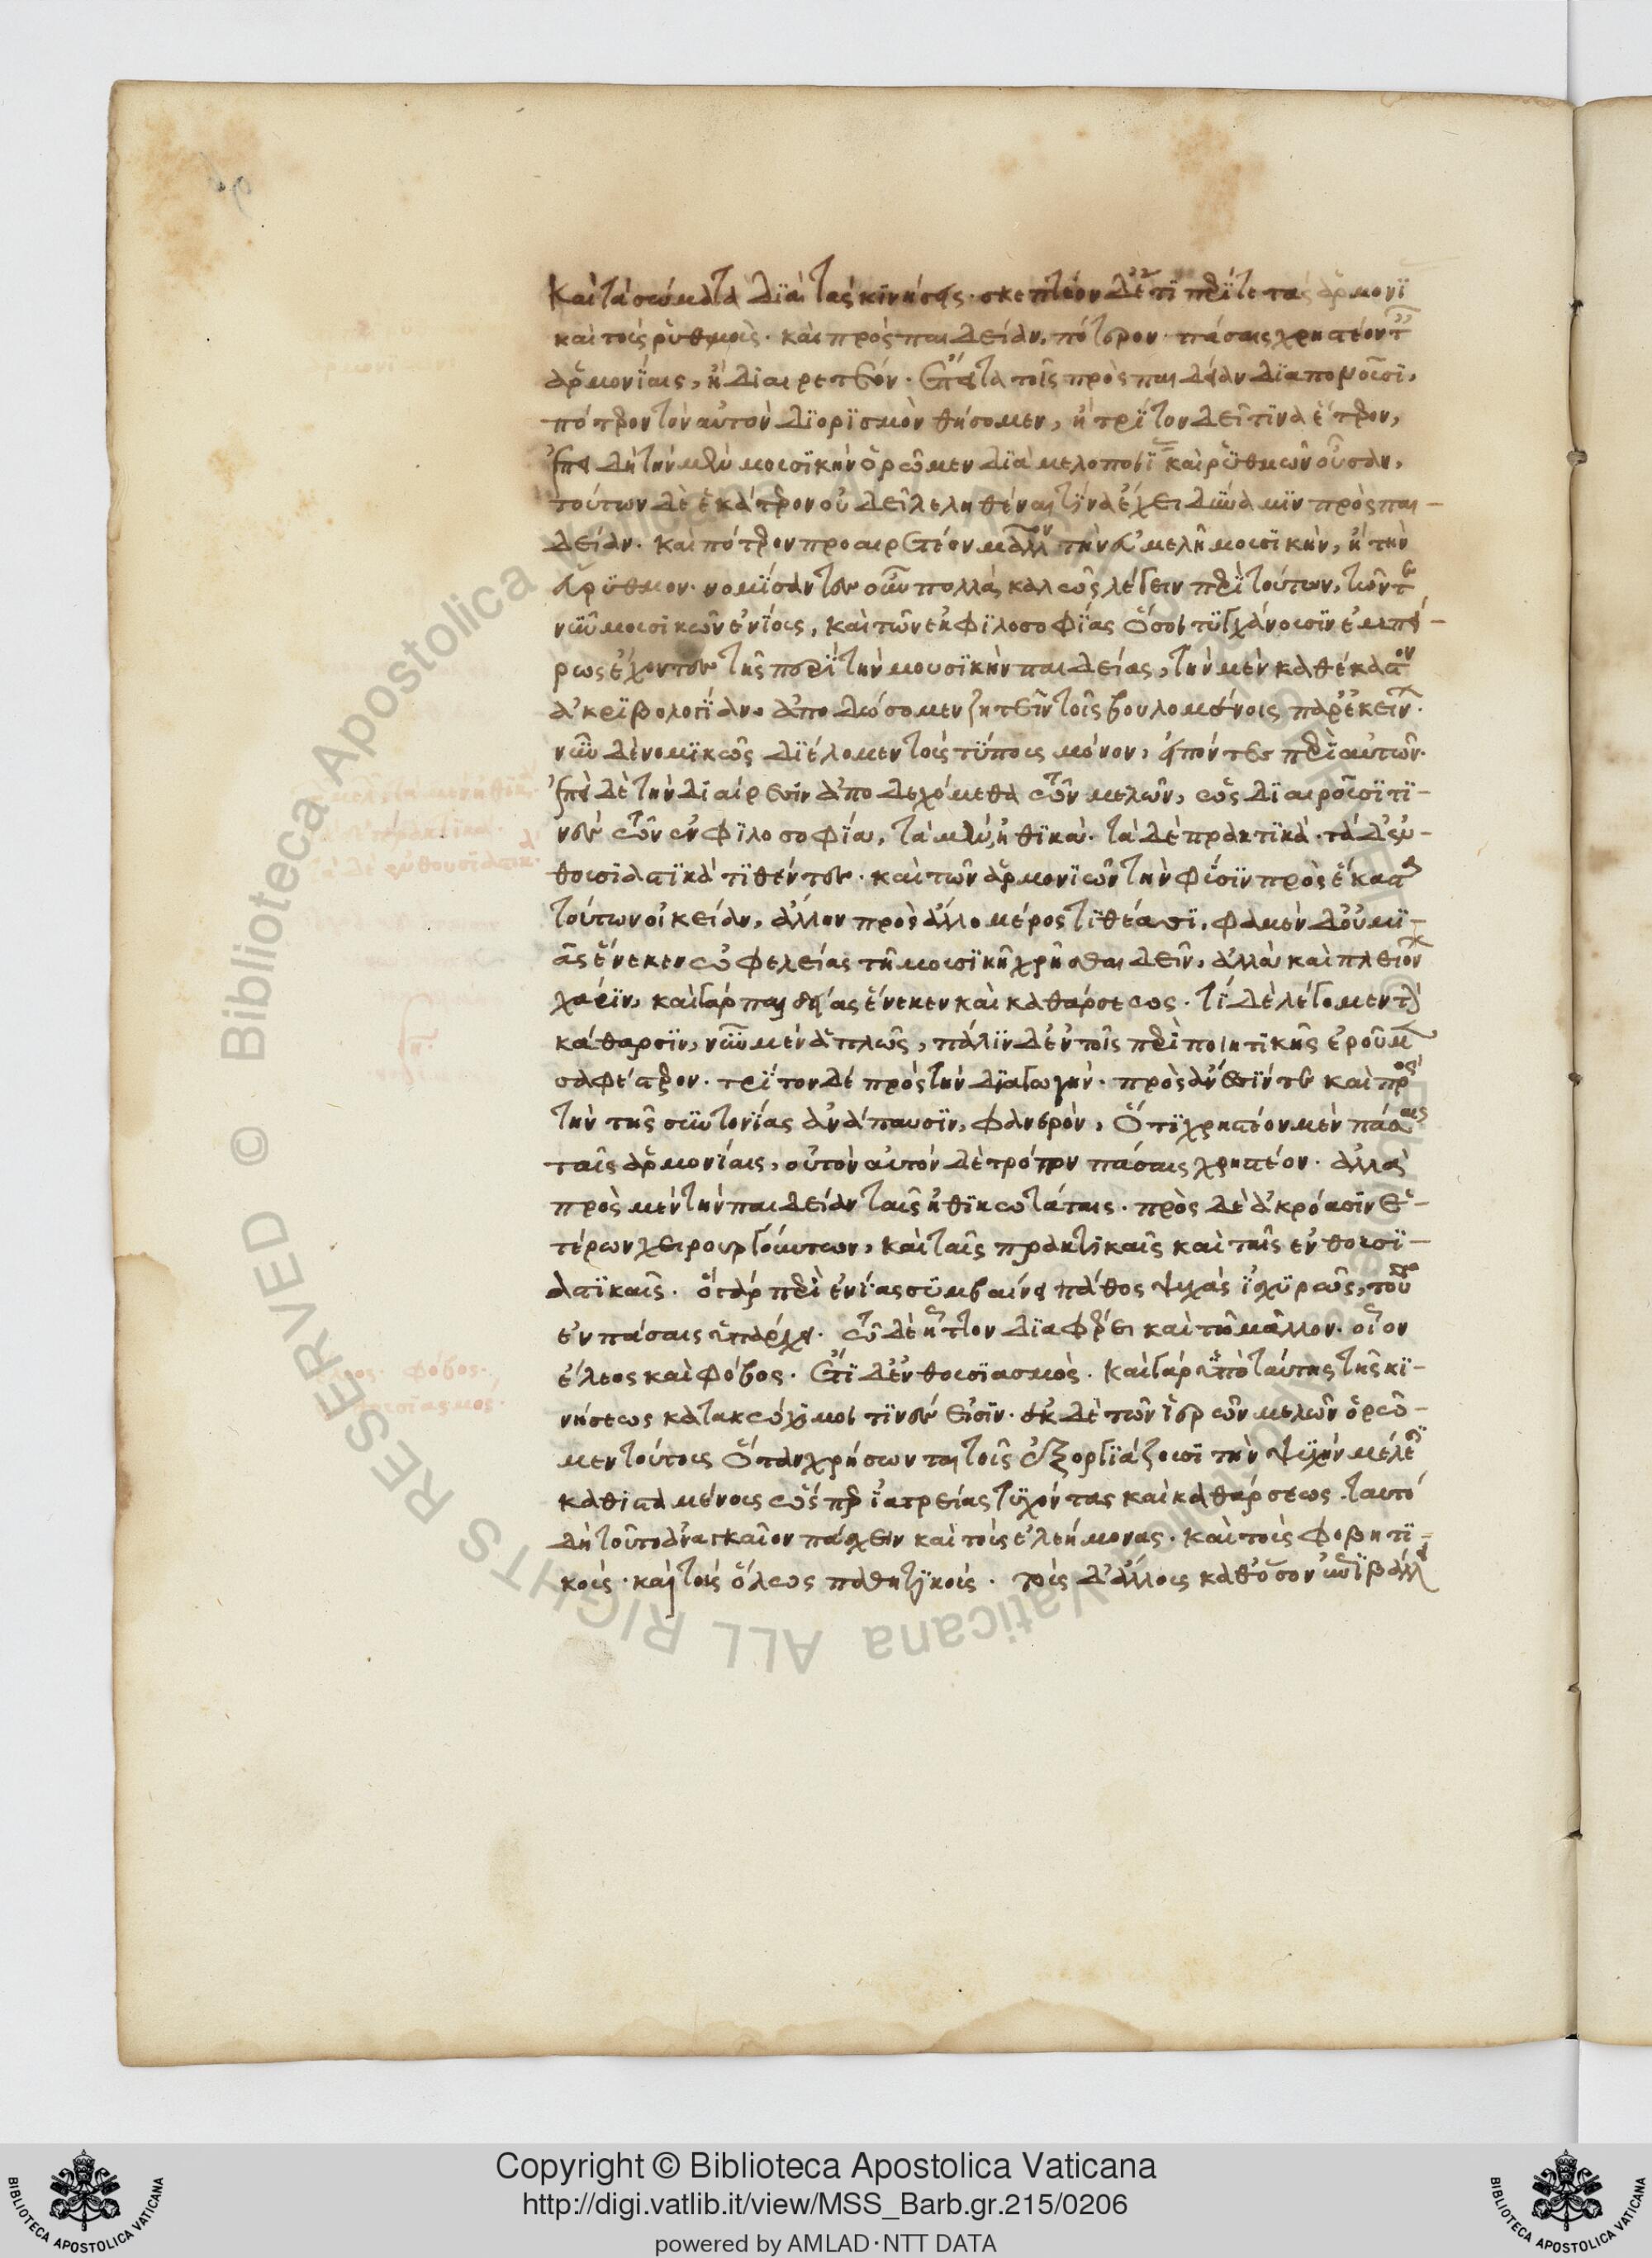 καὶ τὰ σώματα διὰ τὰς κινήσεις. σκεπτέον δέ τι περί τε τὰς ἁρμονίας
καὶ τοὺς ῥυθμοὺς. καὶ πρὸς παιδείαν. πότερον πάσαις χρηστέον τ
ἁρμονίαις, ἢ διαιρετέον. ἔπειτα τοῖς πρὸς παιδείαν διαπονοῦσι,
πότερον τὸν αὐτὸν διορισμὸν θήσομεν, ἢ τρίτον δεῖ τινα ἕτερον,
ἐπεὶ δὴ τὴν μὲν μουσικὴν ὁρῶμεν διὰ μελοποιΐας καὶ ῥυθμῶν οὖσαν,
τούτων δὲ ἑκάτερον οὐ δεῖ λεληθέναι τίνα ἔχει δύναμιν πρὸς παι-
δείαν. καὶ πότερον προαιρετέον μᾶλλον τὴν εὐμελῆ μουσικὴν, ἢ τὴν
εὔρυθμον. νομίσαντες οὖν πολλὰ καλῶς λέγειν περὶ τούτων, τῶν τε
νῦν μουσικῶν ἐνίους, καὶ τῶν ἐκ φιλοσοφίας ὅσοι τυγχάνουσιν ἐμπεί-
ρως ἔχοντες τῆς περὶ τὴν μουσικὴν παιδείας, τὴν μὲν καθέκαστον
ἀκριβολογίαν. ἀποδώσομεν ζητεῖν τοῖς βουλομένοις παρ' ἐκείνων.
νῦν δὲ νομικῶς διέλομεν τοὺς τύπους μόνον, εἰπόντες περὶ αὐτῶν.
ἐπεὶ δὲ τὴν διαίρεσιν ἀποδεχόμεθα τῶν μελῶν, ὡς διαιροῦσί τι-
νες τῶν ἐν φιλοσοφίᾳ, τὰ μὲν, ἠθικὰ. τὰ δὲ πρακτικὰ. τὰ δ' ἐν-
θουσιαστικὰ τιθέντες. καὶ τῶν ἁρμονιῶν τὴν φύσιν πρὸς ἕκαστα
τούτων οἰκείαν, ἄλλην πρὸς ἄλλο μέρος τιθέασι, φαμὲν δ' οὐ μι-
ᾶς ἕνεκεν ὠφελείας τῇ μουσικῇ χρῆσθαι δεῖν, ἀλλὰ καὶ πλειόνων
χάριν, καὶ γὰρ παιδείας ἕνεκεν καὶ καθάρσεως. τί δὲ λέγομεν τὴν
κάθαρσιν, νῦν μὲν ἁπλῶς, πάλιν δ' ἐν τοῖς περὶ ποιητικῆς ἐροῦμεν
σαφέστερον. τρίτον δὲ πρὸς τὴν διαγωγὴν. πρὸς ἄνεσίν τε καὶ πρὸς
τὴν τῆς συντονίας ἀνάπαυσιν, φανερὸν, ὅτι χρηστέον μὲν πάσαις
ταῖς ἁρμονίαις, οὐ τὸν αὐτὸν δὲ τρόπον πάσαις χρηστέον. ἀλλὰ
πρὸς μὲν τὴν παιδείαν ταῖς ἠθικωτάταις. πρὸς δὲ ἀκρόασιν ἑ-
τέρων χειρουργούντων, καὶ ταῖς πρακτικαῖς καὶ ταῖς ἐνθουσι-
αστικαῖς. ὃ γὰρ περὶ ἐνίας συμβαίνει πάθος ψυχὰς ἰσχυρῶς, τοῦτο
ἐν πάσαις ὑπάρχει. τῷ δὲ ἧττον διαφέρει καὶ τῷ μᾶλλον. οἷον
ἔλεος καὶ φόβος. ἔτι δ' ἐνθουσιασμὸς. καὶ γὰρ ὑπὸ ταύτης τῆς κι-
νήσεως κατακώχιμοί τινες εἰσὶν. ἐκ δὲ τῶν ἱερῶν μελῶν ὁρῶ-
μεν τούτους ὅταν χρήσωνται τοῖς ἐξοργιάζουσι τὴν ψυχὴν μέλεσι
καθισταμένους ὥσπερ ἰατρείας τυχόντας καὶ καθάρσεως. ταυτὸ
δὴ τοῦτο ἀναγκαῖον πάσχειν καὶ τοὺς ἐλεήμονας. καὶ τοὺς φοβητι-
κοὺς. καὶ τοὺς ὅλως παθητικοὺς. τοὺς δ' ἄλλους καθ' ὅσον ἐπιβάλλει
Copyright © Biblioteca Apostolica Vaticana
http://digi.vatlib.it/view/MSS_Barb.gr.215/0206
powered by AMLAD·NTT DATA
BIBLIOTECA APOSTOLICA VATICANA
BIBLIOTECA APOSTOLICA VATICANA